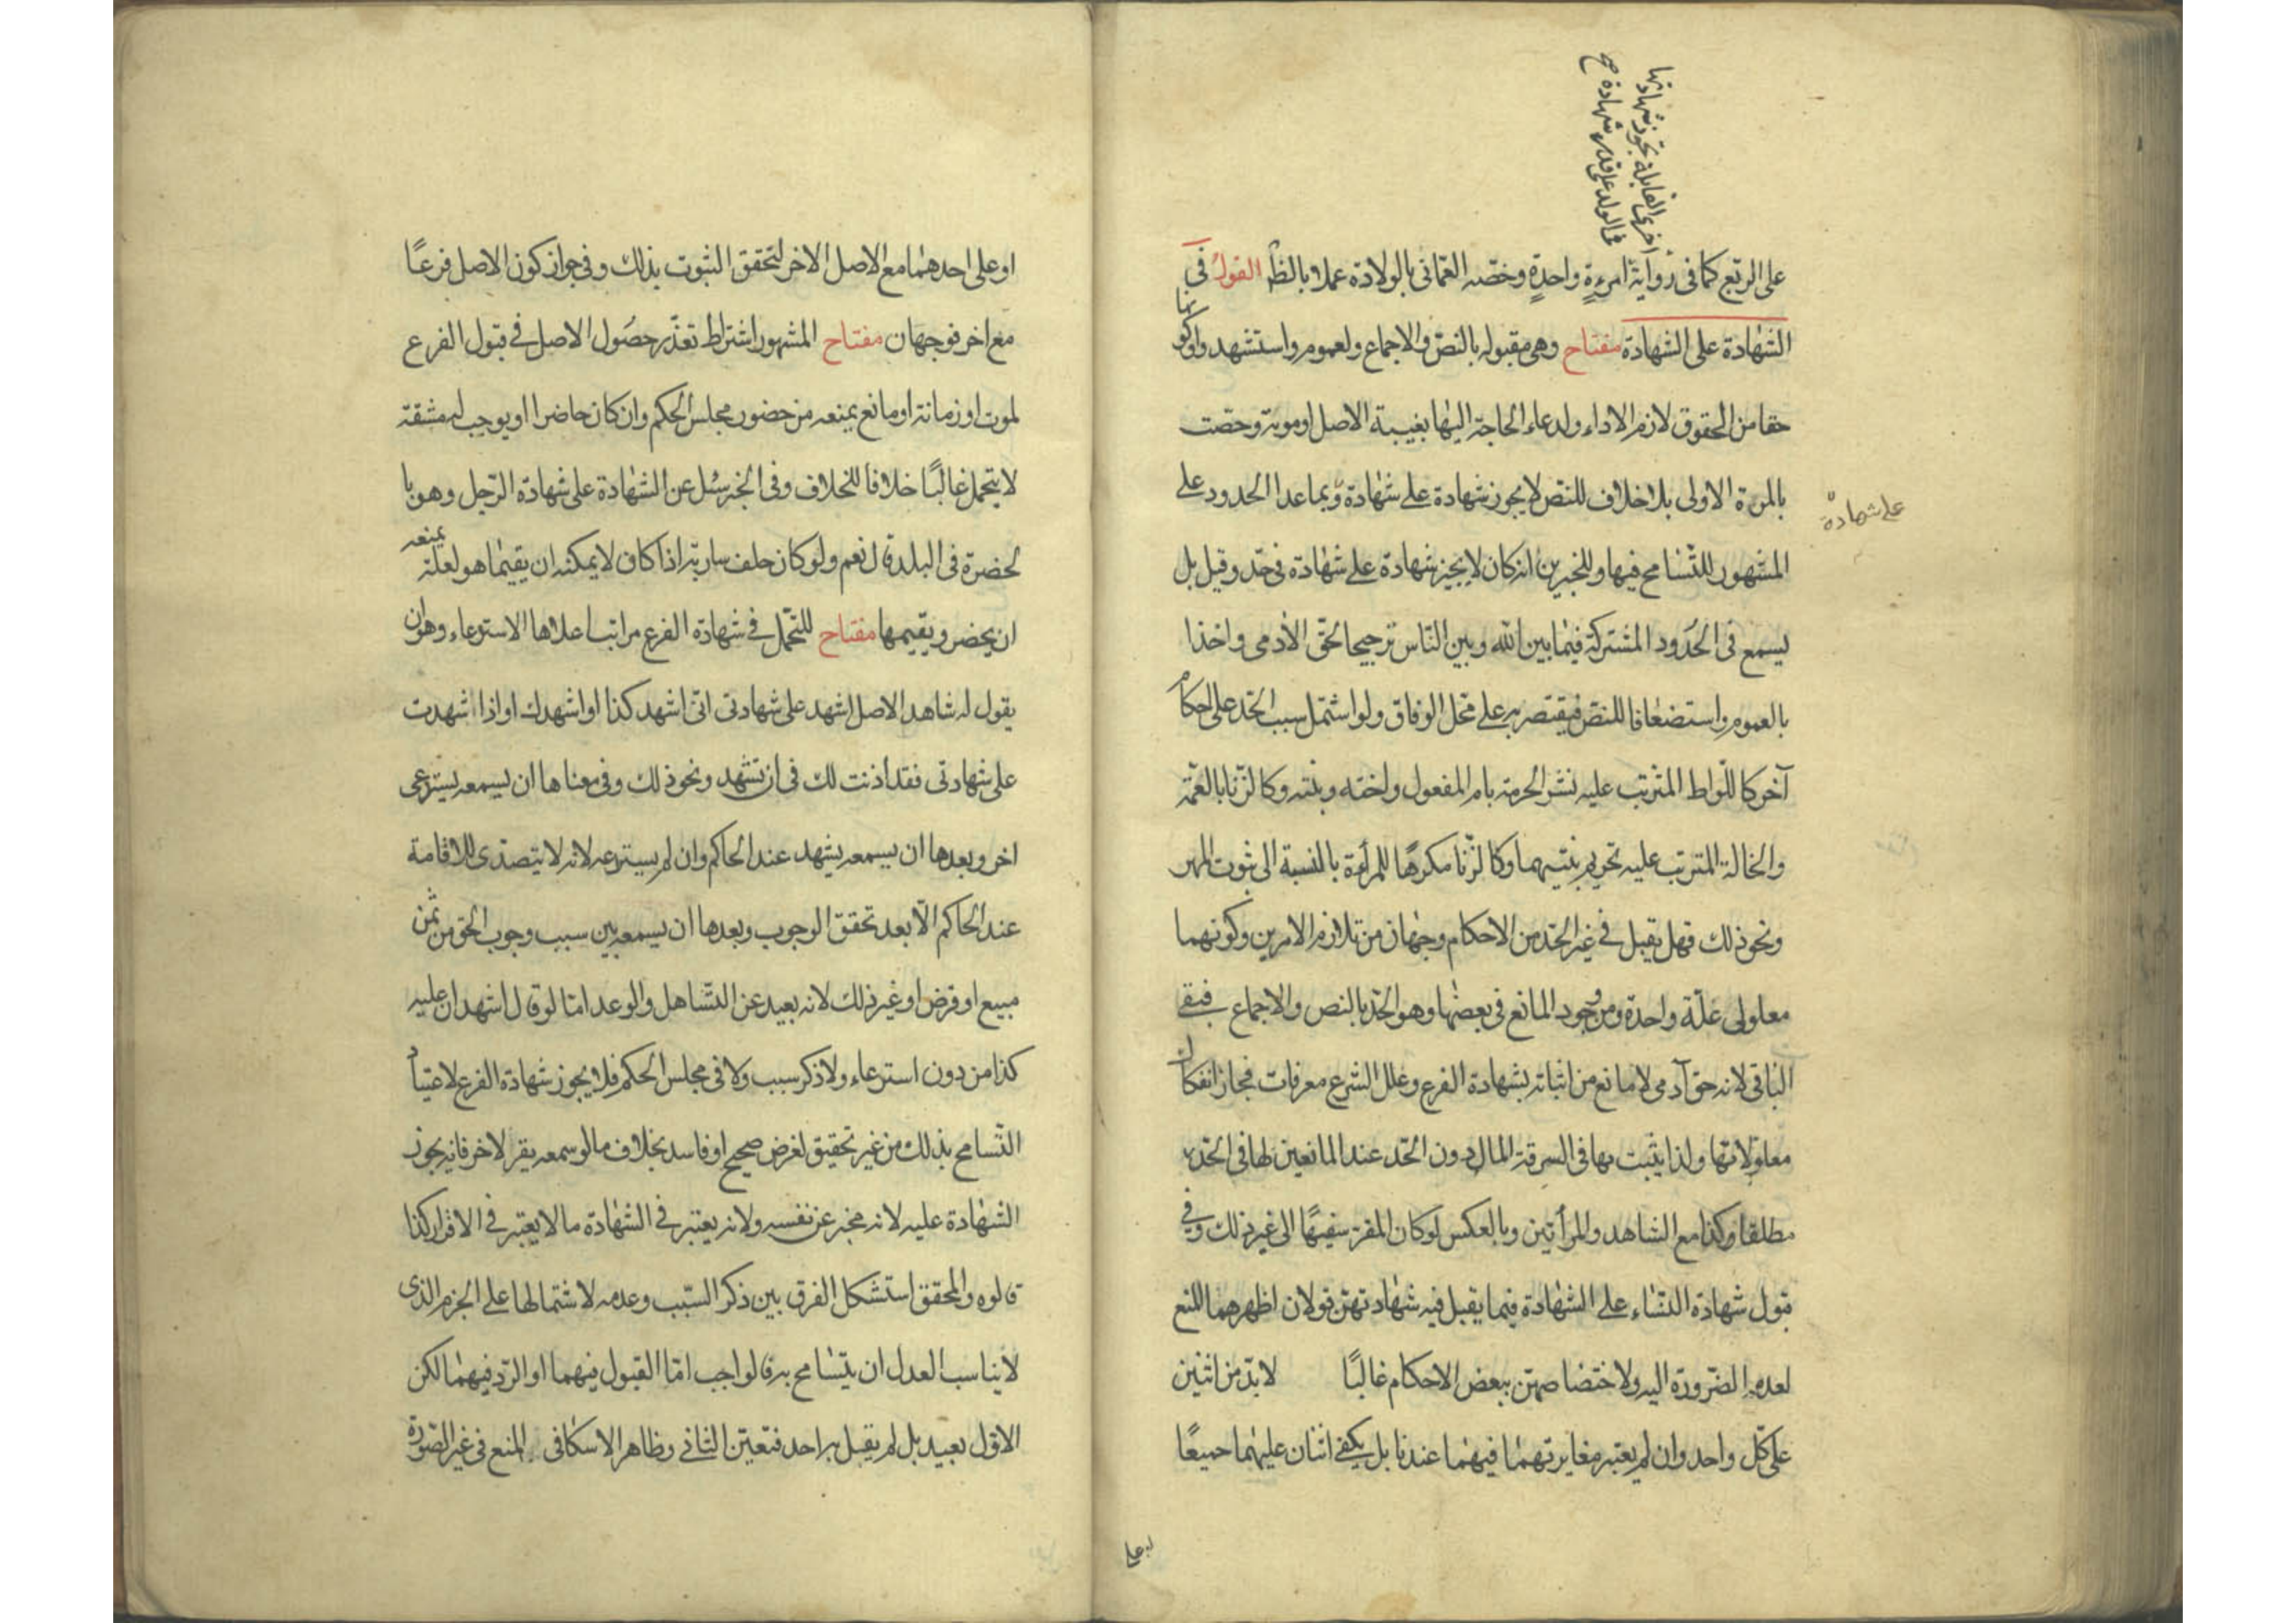 اخرى القابلة تجوز شهادتها
فى الولد على قدر شهادة صح
على الربع كما فى رواية امرءة واحدة وخصّه العمّانى بالولادة عملا بالظ القول فى
الشهادة على الشهادة مفتاح وهى مقبوله بالنصّ والاجماع ولعموم واستشهدوا وكونها
حقا من الحقوق لازم الاداء ولدعاء الحاجة اليها بغيبة الاصل او موته وخصّت
بالمرة الاولى بلا خلاف للنصّ لا يجوز شهادة على شهادة وبما عدا الحدود على
على شهادة
المشهور للتّسامح فيها وللخبرين انه كان لا يجيز شهادة على شهادة فى حدّ وقيل بل
يسمع فى الحدود المشتركة فيما بين الله وبين النّاس ترجيحا لحقّ الأدمى واخذا
بالعموم واستضعافا للنصّ فيقتصر به على محّل الوفاق ولو اشتمل سبب الحدّ على احكام
آخر كاللّواط المترتب عليه نشر الحرمة بام المفعول واخته وبنته وكالزّنا بالعمّة
والخالة المترتب عليه تحريم بنتيهما وكالزّنا مكرهًا للمرأة بالنسبة الى ثبوت المهر
ونحو ذلك فهل يقبل فى غير الحدّ من الاحكام وجهان من تلازم الامرين وكونهما
معلولى علّة واحدة ومن وجود المانع فى بعضها وهو الحدّ بالنص والاجماع فيبقى
الباقى لانه حق آدمى لا مانع من اثباته بشهادة الفرع وعلل الشرع معرفات فجاز انفكاك
معلولاتها ولذا يثبت بها فى السرقة المال دون الحد عند المانعين لها فى الحدّ
مطلقا وكذا مع الشاهد والمرأتين وبالعكس لو كان المقر سفيهًا الى غير ذلك وفى
قبول شهادة النساء على الشهادة فيما يقبل فيه شهادتهنّ قولان اظهرهما المنع
لعدم الضّرورة اليه ولاختصاصهنّ ببعض الاحكام غالبًا لا بدّ من اثنين
على كلّ واحد وان لم يعتبر مغايرتهما فيهما عندنا بل يكفى اثنان عليهما جميعًا
او على
او على احدهما مع الاصل الاخر لتحقق الثبوت بذلك وفى جواز كون الاصل فرعًا
مع اخر فوجهان مفتاح المشهور اشتراط تعذّر حصول الاصل فى قبول الفرع
لموت او زمانة او مانع يمنعه من حضور مجلس الحكم وان كان حاضرا او يوجب له مشقة
لا يتحمل غالبًا خلافا للخلاف وفى الخبر سئل عن الشهادة على شهادة الرّجل وهو با
لحضرة فى البلد قال نعم ولو كان خلف سارية اذا كان لا يمكنه ان يقيمها هو لعلة يمنعه
ان يحضر ويقيمها مفتاح للتحّمل فى شهادة الفرع مراتب اعلاها الاسترعاء وهو ان
يقول له شاهد الاصل اشهد على شهادتى انى اشهد كذا او اشهدك او اذا شهدت
على شهادتى فقد اذنت لك فى ان تشهد ونحو ذلك وفى معناها ان يسمعه يسترعى
اخر وبعدها ان يسمعه يشهد عند الحاكم وان لم يسترعه لانه لا يتصدّى للاقامة
عند الحاكم الّا بعد تحقق الوجوب وبعدها ان يسمعه يبين سبب وجوب الحق من ثمن
مبيع او قرض او غير ذلك لانه بعيد عن التّساهل والوعد امّا لو قال اشهد ان عليه
كذا من دون استرعاء ولا ذكر سبب ولا فى مجلس الحكم فلا يجوز شهادة الفرع لاعتياد
التّسامح بذلك من غير تحقيق لغرض صحيح او فاسد بخلاف ما لو سمعه يقر لاخر فانه يجوز
الشهادة عليه لانه مخبر عن نفسه ولانه يعتبر فى الشهادة ما لا يعتبر فى الاقرار كذا
قالوه والمحقق استشكل الفرق بين ذكر السّبب وعدمه لاشتمالها على الجزم الذى
لا يناسب العدل ان يتسامح به قالواجب امّا القبول فيهما او الرّد فيهما لكن
الاوّل بعيد بل لم يقبل به احد فتعيّن الثانى وظاهر الاسكافى المنع فى غير الصّورة